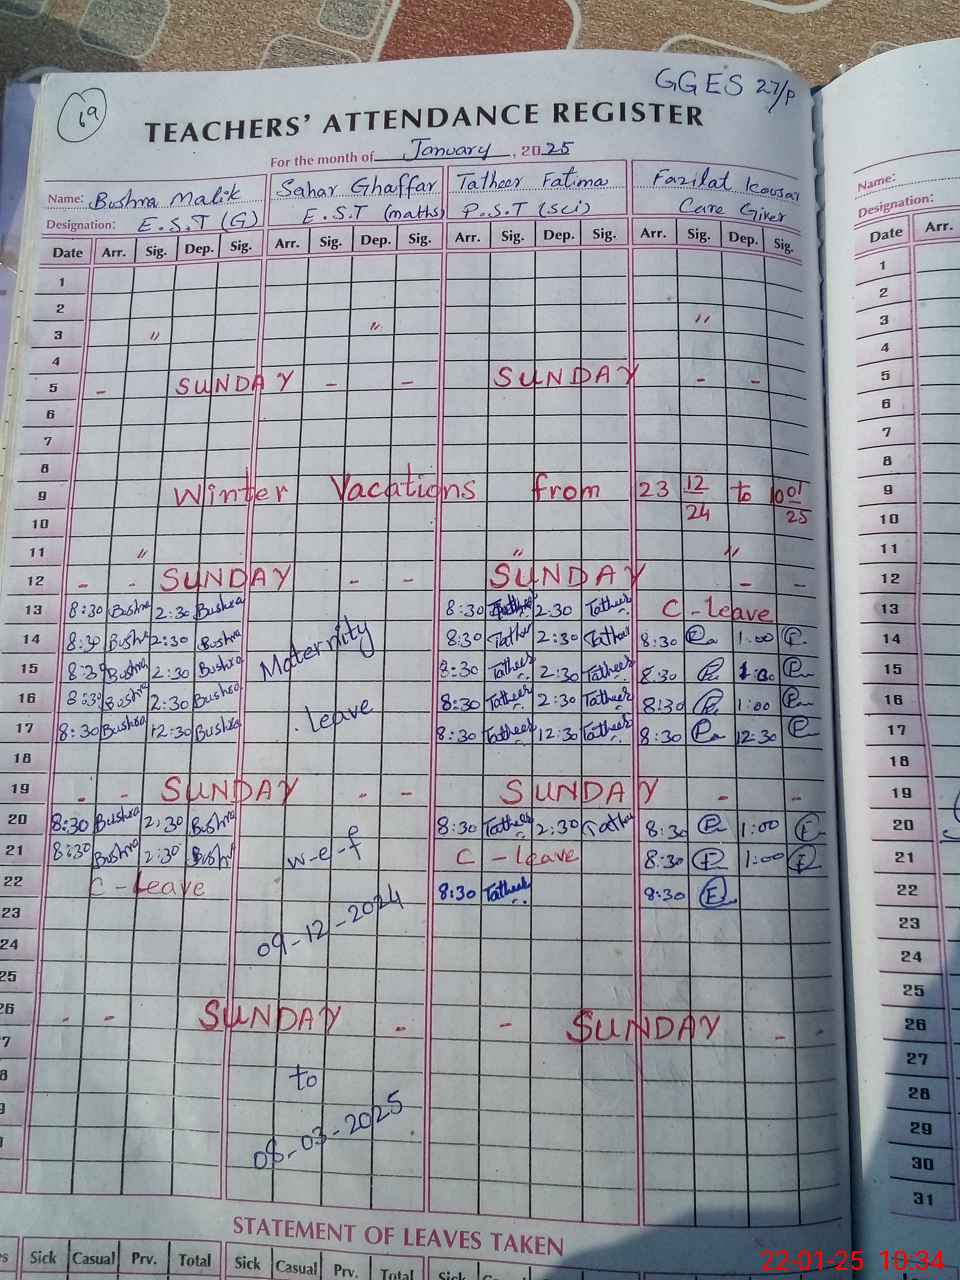 69
GGES 27/P
TEACHERS' ATTENDANCE REGISTER
For the month of January, 2025
Name: Bushra Malik Sahar Ghaffar Tatheer Fatima Fazilat Kousar Name:
Designation: E.S.T (G) E.S.T (maths) P.S.T (sci) Care Giver Designation:
Date Arr. Sig. Dep. Sig. Arr. Sig. Dep. Sig. Arr. Sig. Dep. Sig. Arr. Sig. Dep. Sig. Date Arr.
1 1
2 2
3 〃 〃 〃 3
4 4
5 - SUNDAY - - SUNDAY - - 5
6 6
7 7
8 8
9 Winter Vacations from 23 12/24 to 10 01/25 9
10 10
11 〃 〃 〃 11
12 - - SUNDAY - - SUNDAY - - 12
13 8:30 Bushra 2:30 Bushra 8:30 Tatheer 2:30 Tatheer C-leave 13
14 8:30 Bushra 2:30 Bushra Maternity 8:30 Tatheer 2:30 Tatheer 8:30 1:00 14
15 8:30 Bushra 2:30 Bushra 8:30 Tatheer 2:30 Tatheer 8:30 1:00 15
16 8:30 Bushra 2:30 Bushra leave 8:30 Tatheer 2:30 Tatheer 8:30 1:00 16
17 8:30 Bushra 12:30 Bushra 8:30 Tatheer 12:30 Tatheer 8:30 12:30 17
18 18
19 - - SUNDAY - - SUNDAY - - 19
20 8:30 Bushra 2:30 Bushra 8:30 Tatheer 2:30 Tatheer 8:30 1:00 20
21 8:30 Bushra 2:30 Bushra w-e-f C-leave 8:30 1:00 21
22 C-Leave 8:30 Tatheer 8:30 22
23 09-12-2024 23
24 24
25 25
26 - - SUNDAY - - SUNDAY - - 26
7 27
8 to 28
29
08-03-2025 30
31
STATEMENT OF LEAVES TAKEN
Sick Casual Prv. Total Sick Casual Prv. Total Sick
22-01-25 10:34